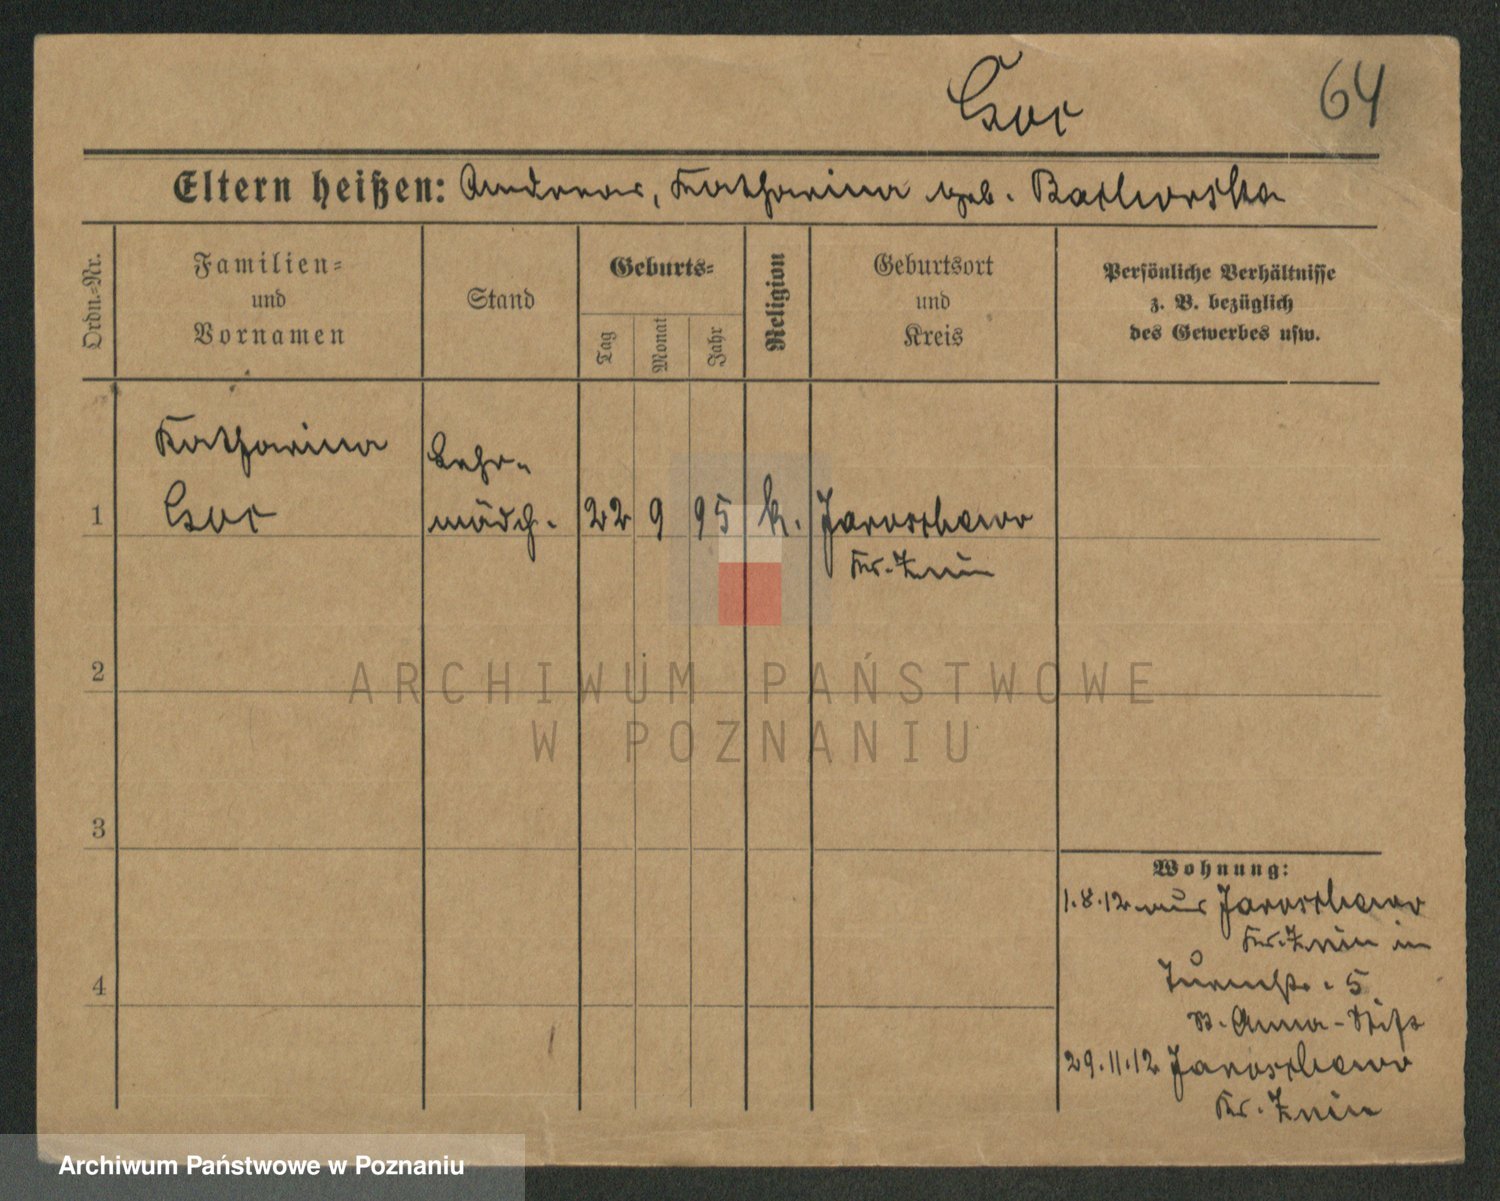 Coc
64
Eltern heißen: Andreas, Katharina geb. Bathorska
Ordn.-Nr.
Familien-
und
Vornamen
Stand
Geburts-
Tag
Monat
Jahr
Religion
Geburtsort
und
Kreis
Persönliche Verhältnisse
z. B. bezüglich
des Gewerbes usw.
Katharina
Lehr-
1
mädch.
22 9 95 k. Jaroschewo
Kr. Znin
2
ARCHIWUM PAŃSTWOWE
W POZNANIU
3
Wohnung:
1.8.12 aus Jaroschewo
Kr. Znin in
4
Turmstr. 5
St. Anna-Stift
29.11.12 Jaroschewo
Kr. Znin
Archiwum Państwowe w Poznaniu